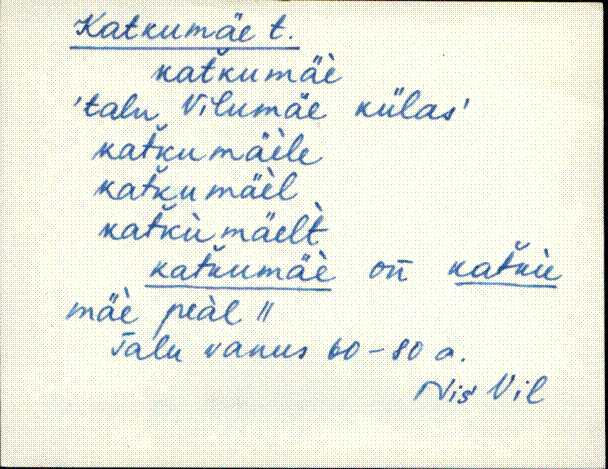 Katkumäe t.
kaťkumäè
'talu Vilumäe külas'
kaťkumäèle
kaťkumäèl
kaťkùmäelt̀
kaťkumäè on̄ kaťkù
mäè peàl ॥
Talu vanus 60-80 a.
Nis Vil